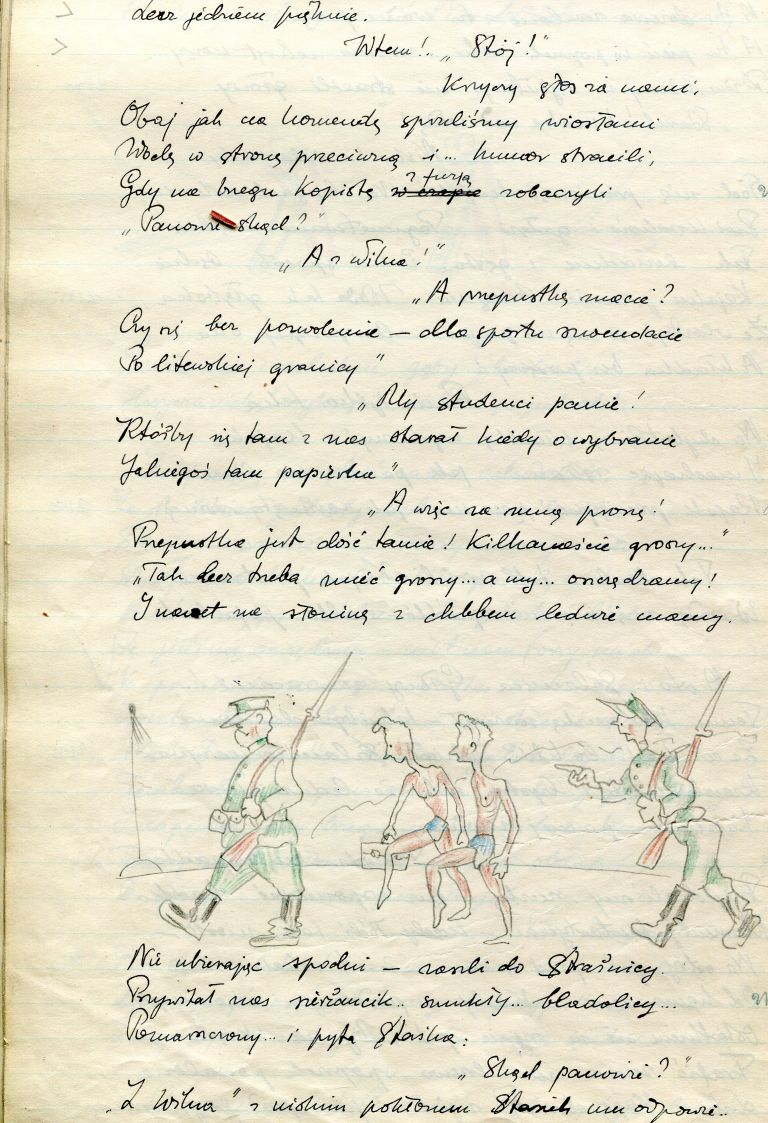 Lecz jednem piękne.
Wtem! „Stój!”
Krzyczy głos za nami,
Obaj jak na komendę spruliśmy wiosłami
Wodę w stronę przeciwną i... humor stracili,
Gdy na brzegu Kopistę z furją zobaczyli
„Panowie skąd?”
„A z Wilna!”
„A przepustkę macie?
Czy się bez pozwolenia — dla sportu szwendacie
Po litewskiej granicy”
„My studenci panie!
Któżby się tam z nas starał kiedy o wybranie
Jakiegoś tam papierka”
„A więc za mną proszę!
Przepustka jest dość tania! Kilkanaście groszy...”
„Tak lecz trzeba mieć groszy... a my... oszczędzamy!
I nawet na słoninę z chlebem ledwie mamy.
Nie ubierając spodni — zaszli do Strażnicy.
Przywitał nas sierżancik.. smukły... bladolicy...
Pomarszczony... i pyta Staśka:
„Skąd panowie?”
„Z Wilna” z niskim pokłonem Stasiek mu odpowie..